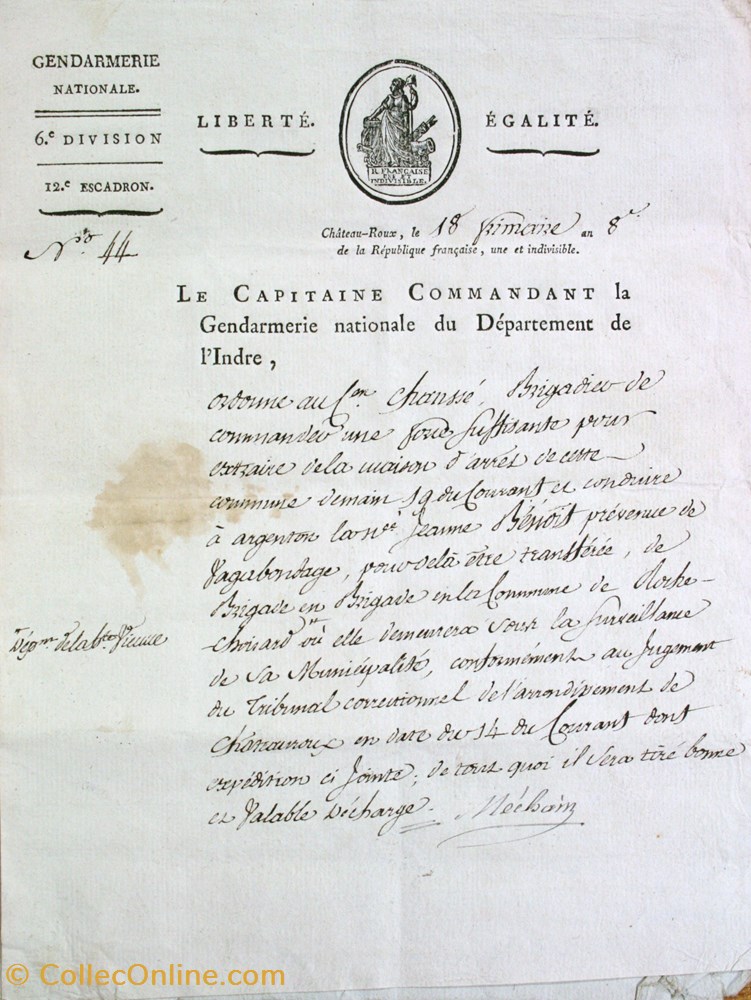 GENDARMERIE
NATIONALE.
6.e DIVISION
12.e ESCADRON.
N.° 44
LIBERTÉ.
ÉGALITÉ.
R. FRANÇAISE
UNE ET
INDIVISIBLE.
Château-Roux, le 18 frimaire an 8e.
de la République française, une et indivisible.
LE CAPITAINE COMMANDANT la
Gendarmerie nationale du Département de
l'Indre,
ordonne au Cen. Chaussé, Brigadier de
commander une force suffisante pour
extraire de la maison d'arrêt de cette
commune demain 19 du Courant et conduire
à argenton la Née Jeanne Bénoît prévenue de
Vagabondage, pour delà être transférée, de
Brigade en Brigade en la Commune de Roche-
-Chouard où elle demeurera sous la Surveillance
Dépm. de la hte. Vienne
de Sa Municipalité, conformément au Jugement
du Tribunal correctionnel de l'arrondissement de
Châteauroux en date du 14 du Courant dont
expédition ci Jointe; de tout quoi il sera tiré bonne
et Valable Décharge.
Méchain
© CollecOnline.com